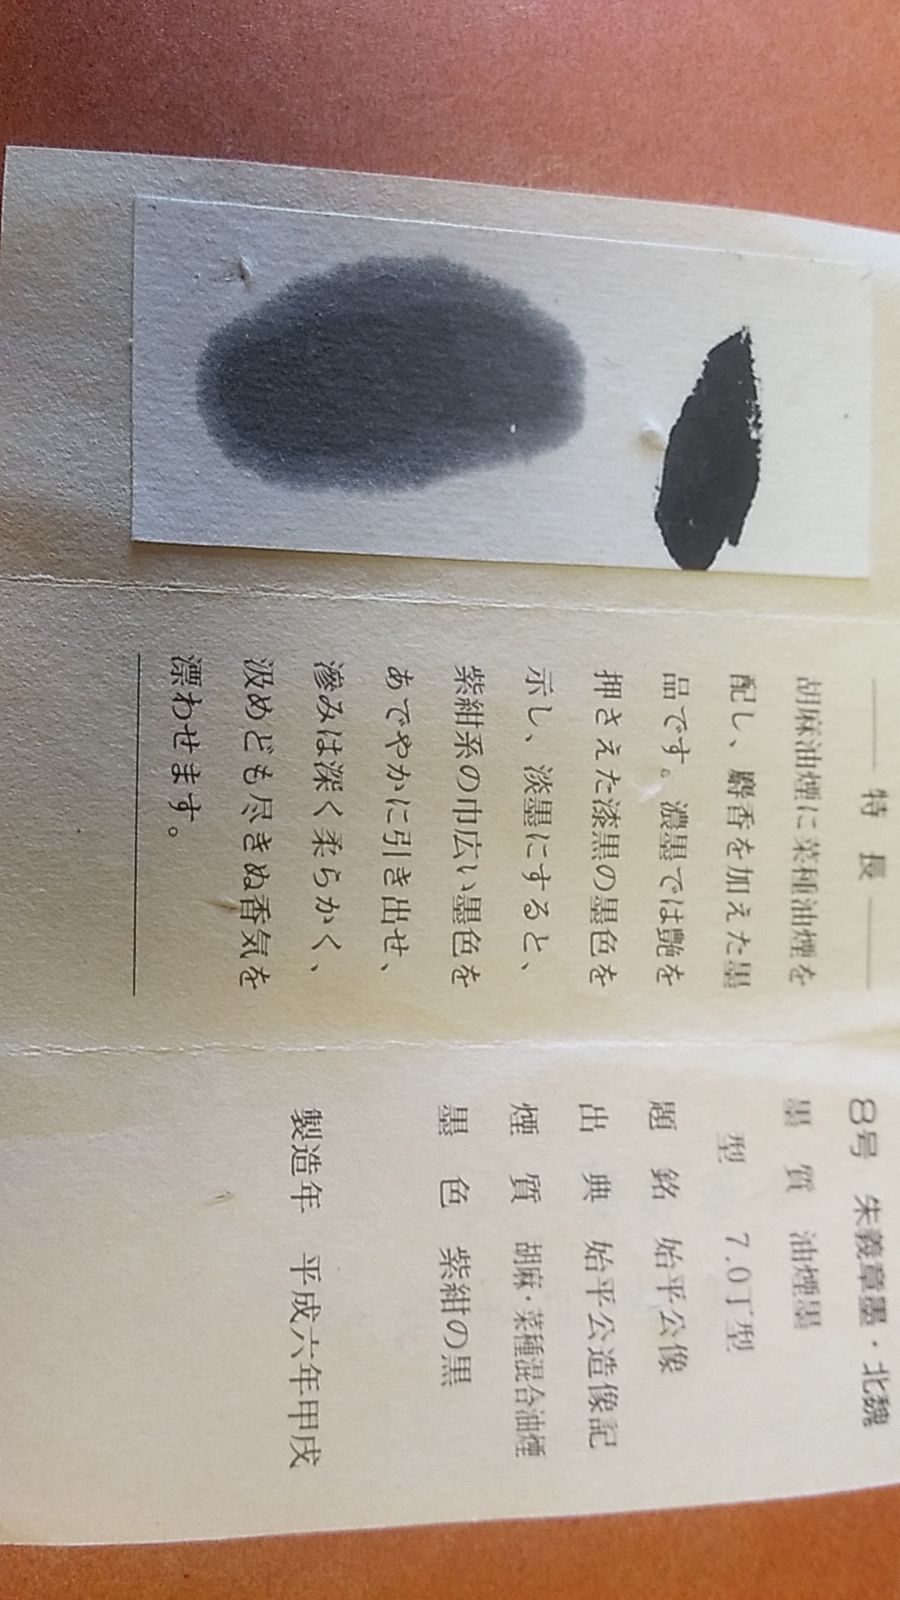 特長
胡麻油煙に菜種油煙を
配し、麝香を加えた墨
品です。濃墨では艶を
押さえた漆黒の墨色を
示し、淡墨にすると、
紫紺系の巾広い墨色を
あでやかに引き出せ、
滲みは深く柔らかく、
汲めども尽きぬ香気を
漂わせます。
8号 朱義章墨・北魏
墨質 油煙墨
型 7.0丁型
題銘 始平公像
出典 始平公造像記
煙質 胡麻・菜種混合油煙
墨色 紫紺の黒
製造年 平成六年甲戌